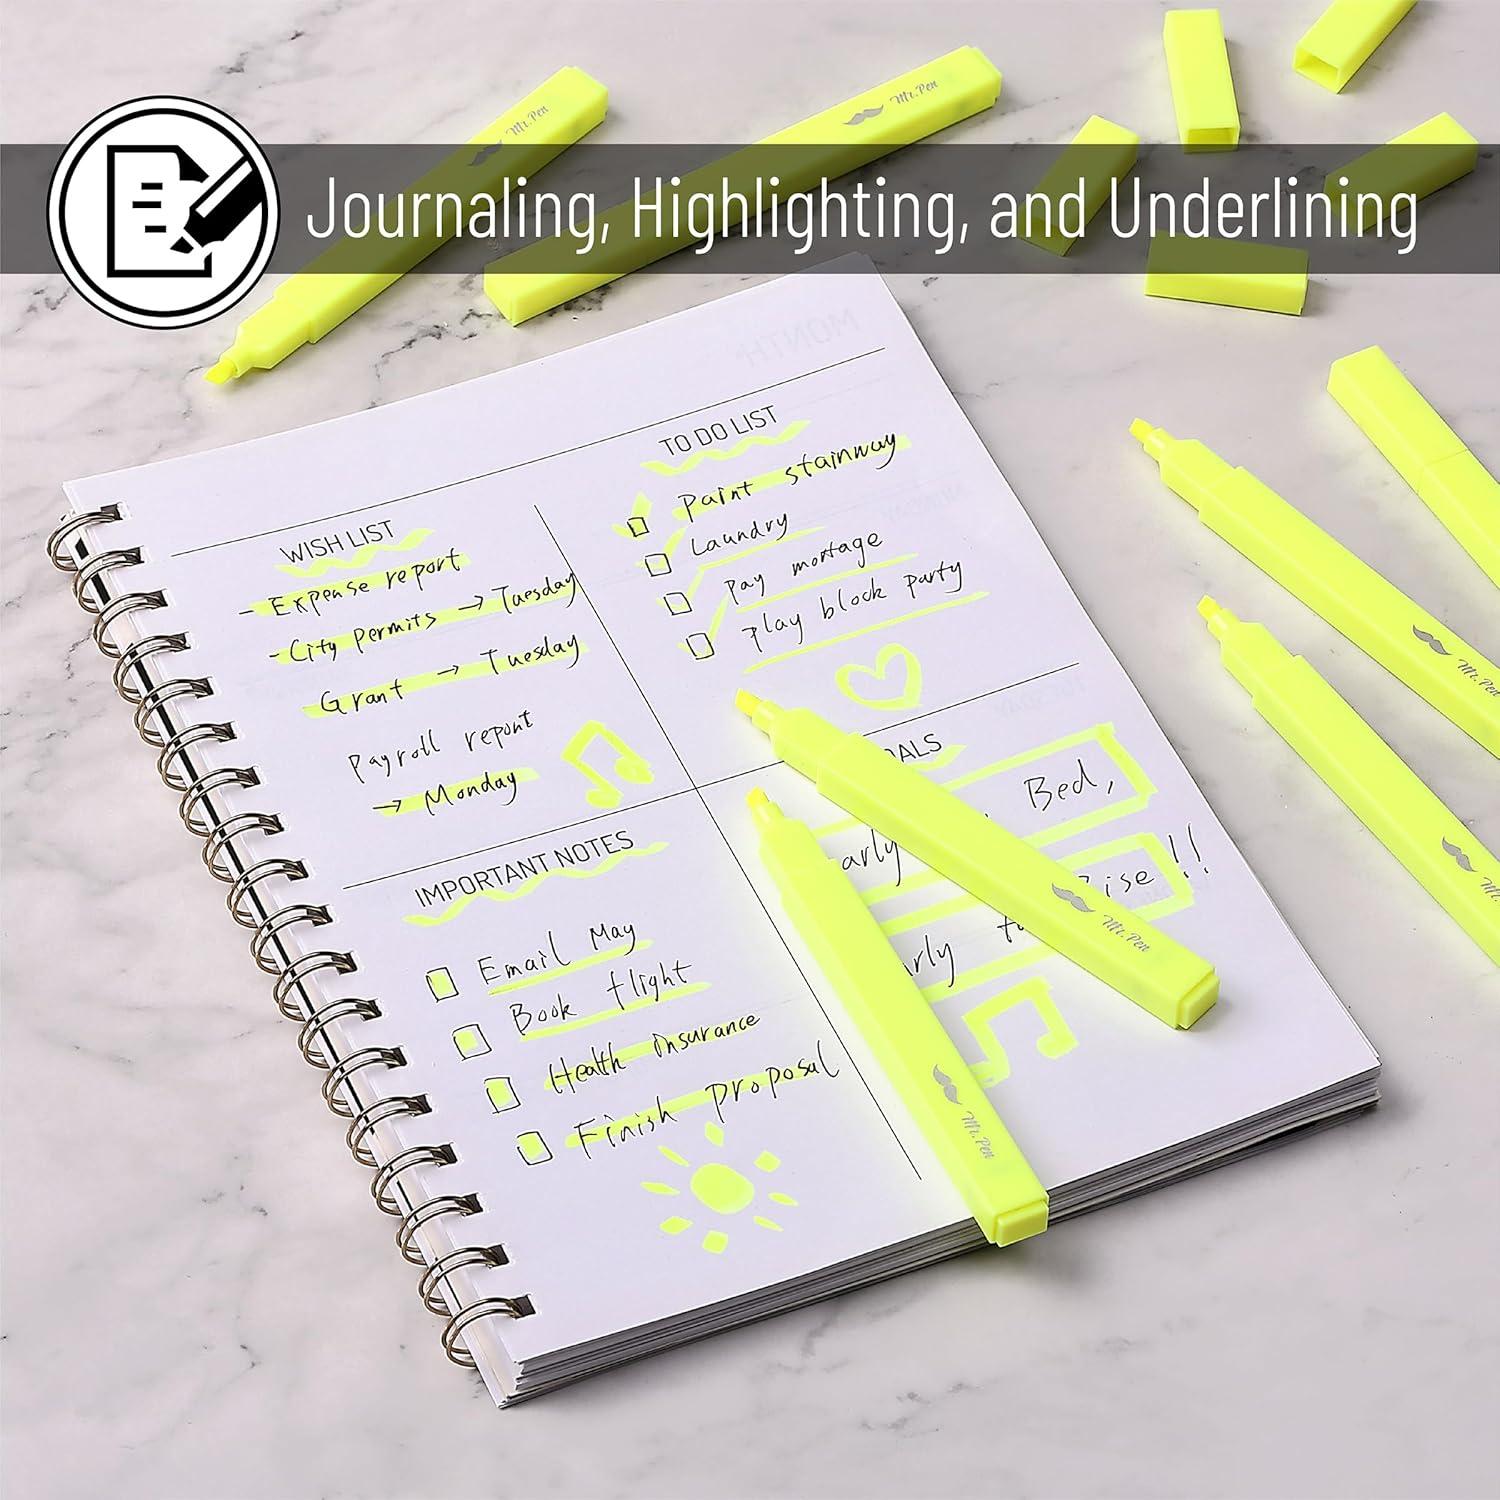 Mr.Pen
Mr.Pen
Journaling, Highlighting, and Underlining
MONTH
TO DO LIST
Paint stainway
Laundry
Pay mortage
Play block party
WISH LIST
- Expense report
- City permits → Tuesday
Grant → Tuesday
Payroll repont
→ Monday
OALS
Bed,
arly
Rise!!
arly to
IMPORTANT NOTES
Email May
Book flight
Health insurance
Finish proposal
Mr.Pen
Mr.Pen
Mr.Pen